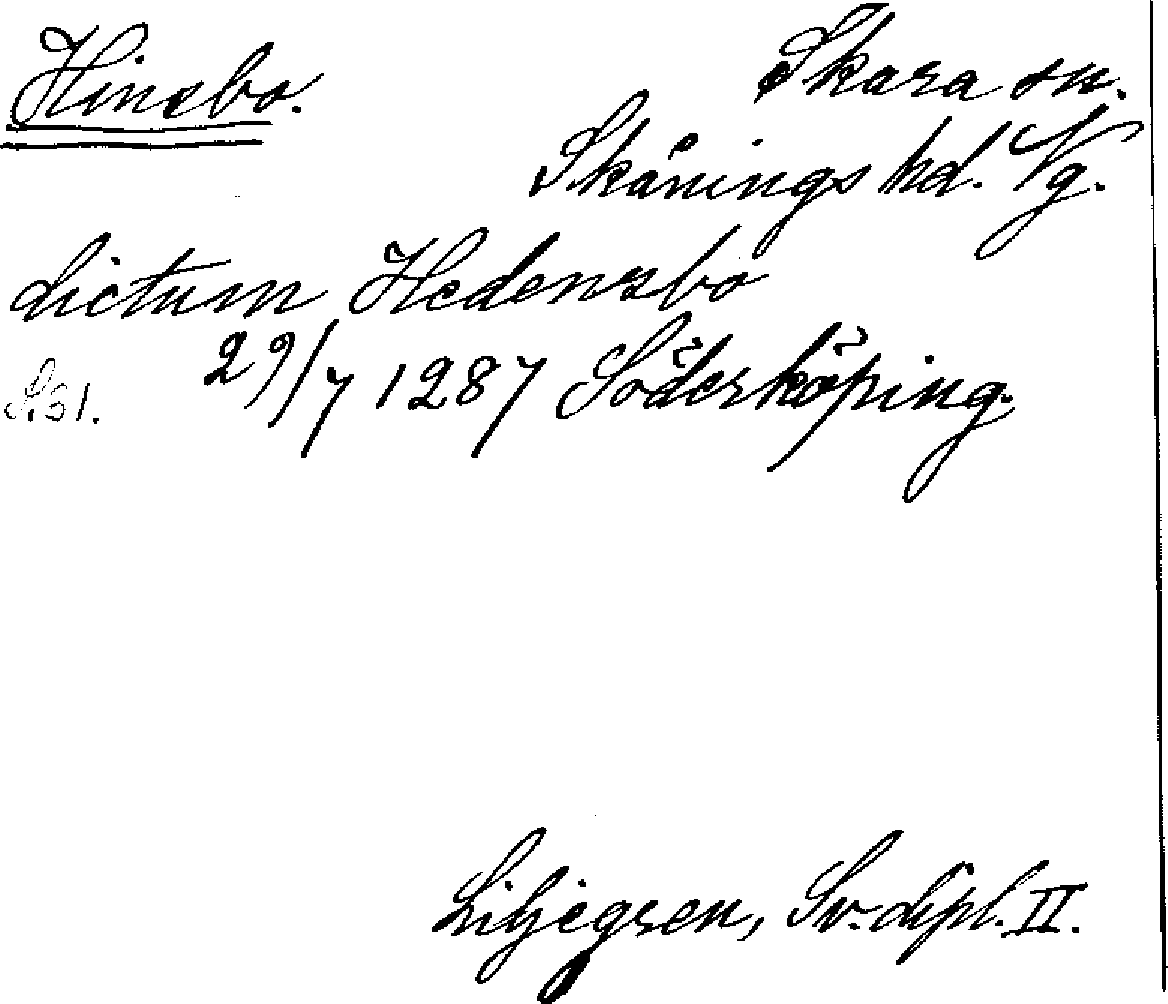 Hinsbo. Skara sn.
Skånings hd. Vg.
dictum Hedensbo
S. 31. 29/7 1287 Söderköping.
Liljegren, Sv. dipl. II.